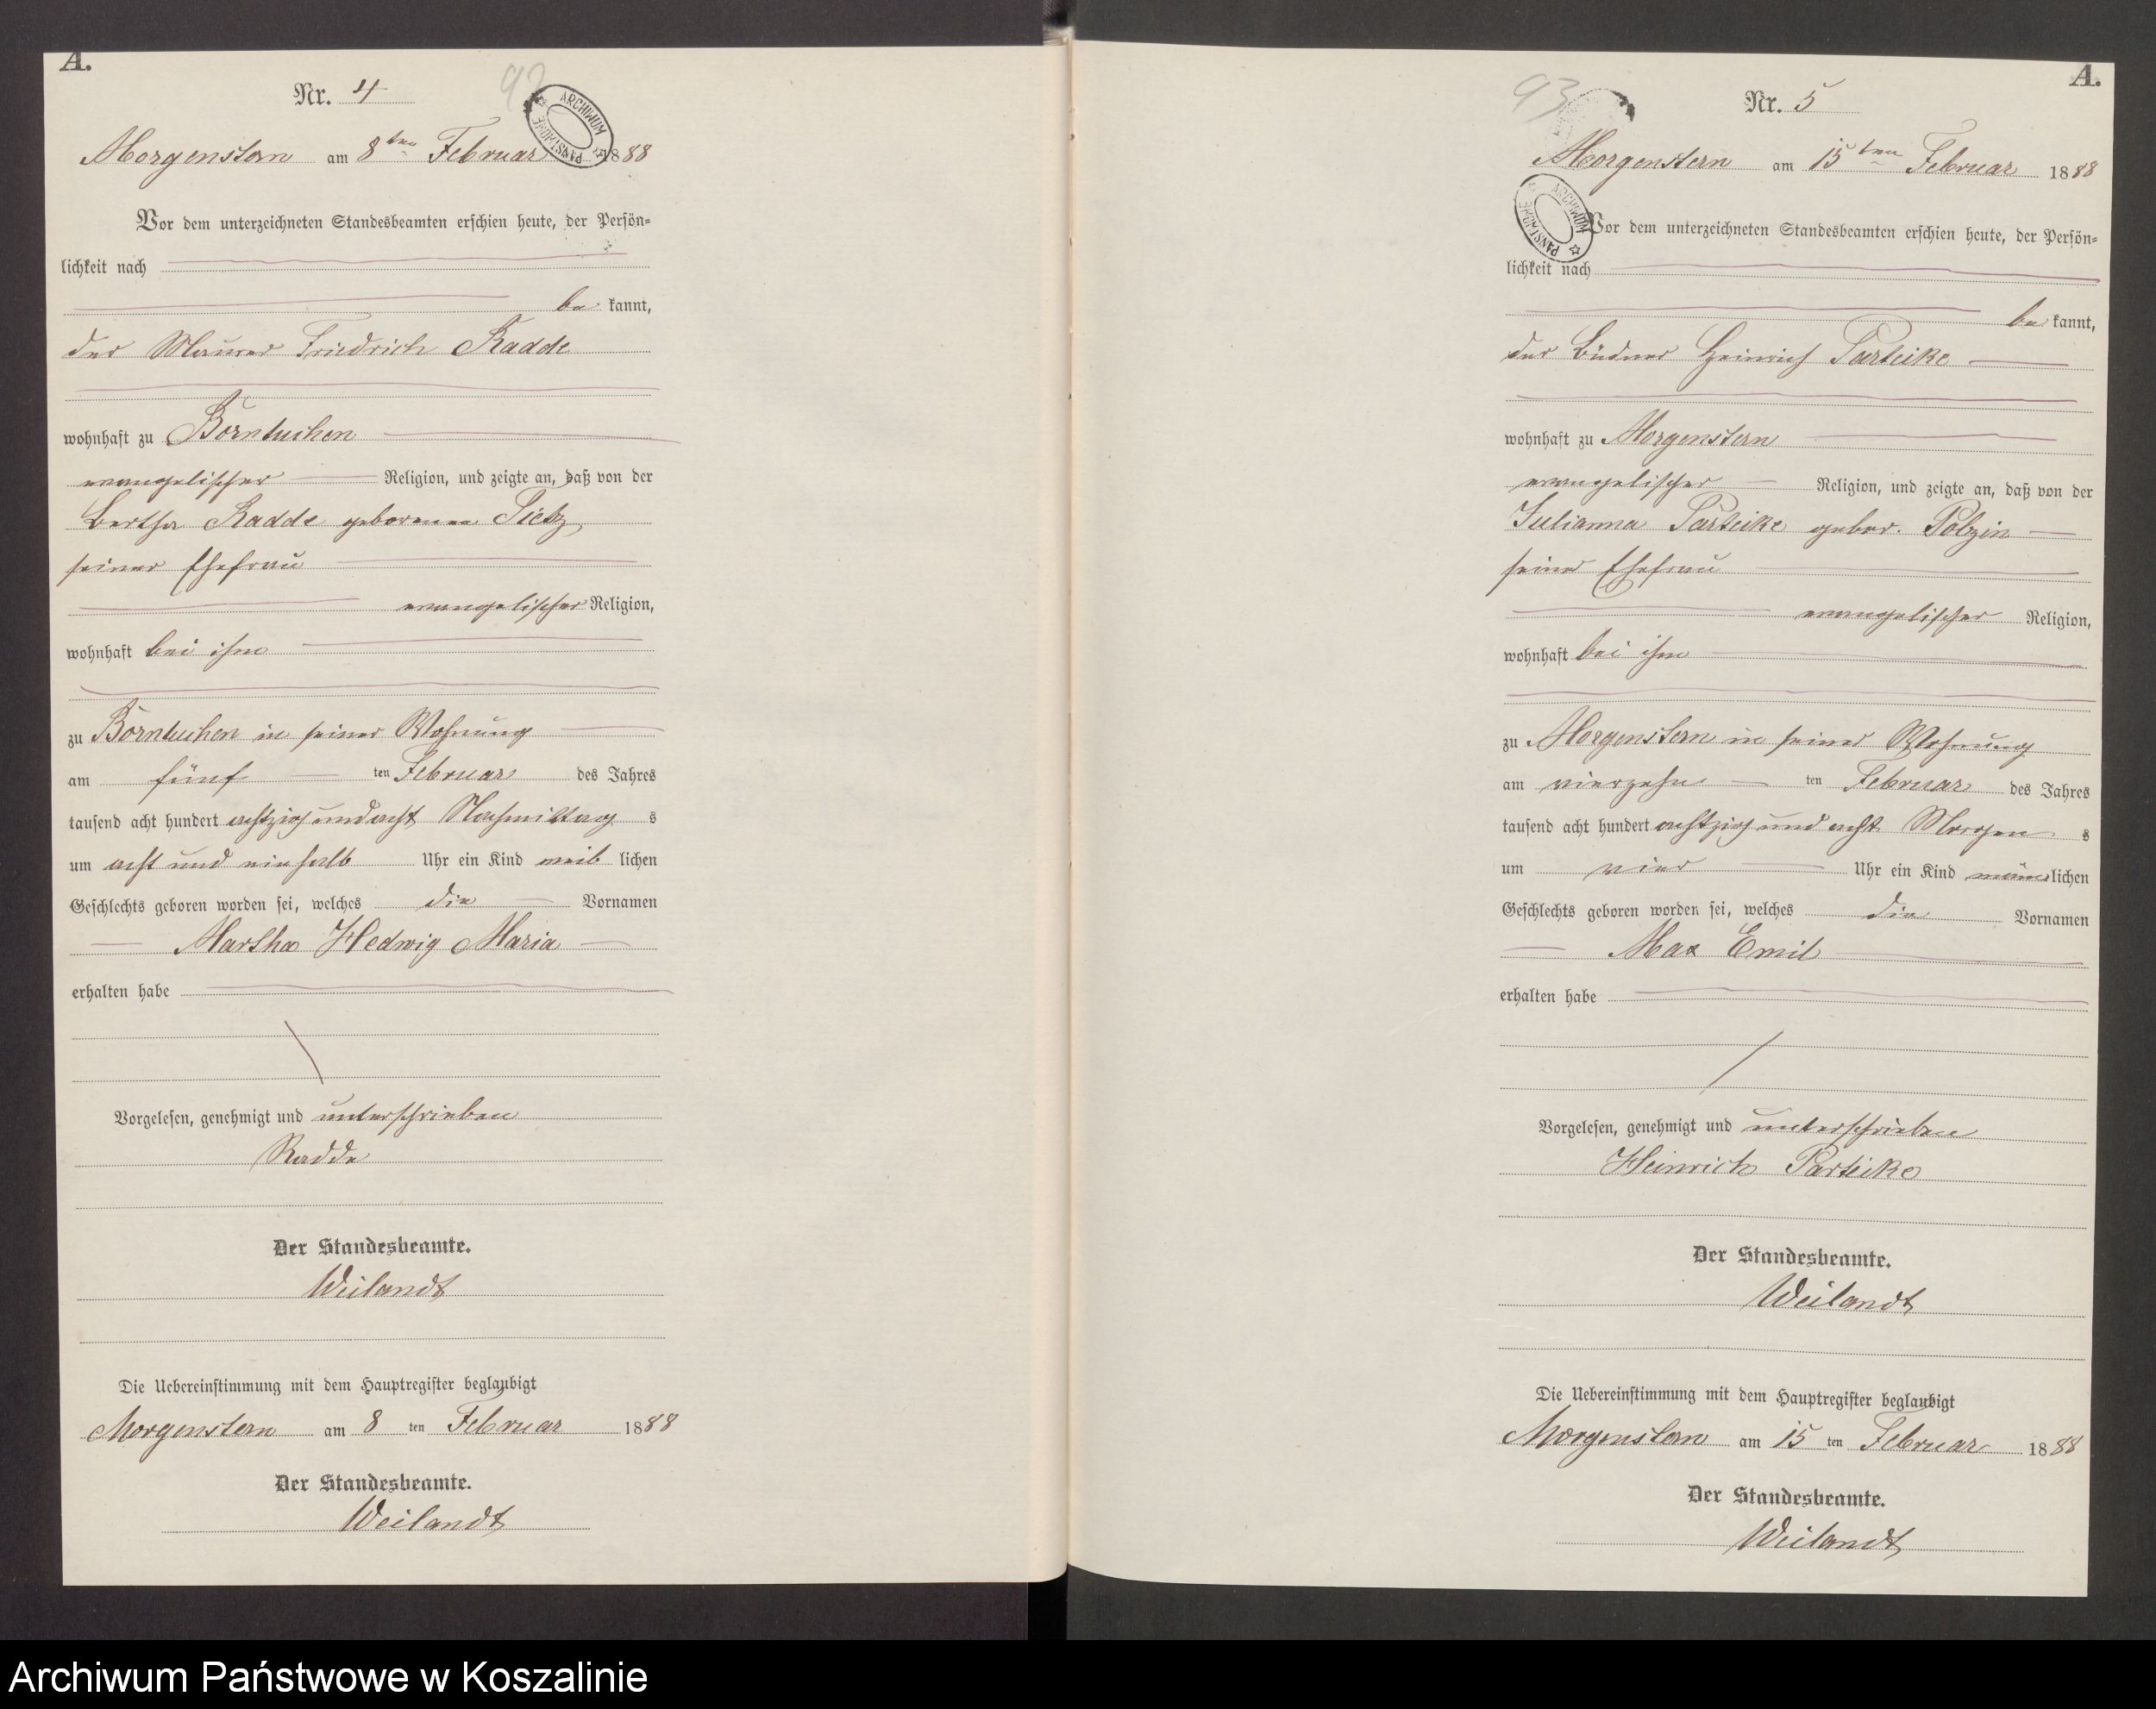 A.
Nr. 4
92
ARCHIWUM PAŃSTWOWE
Morgenstern am 8ten Februar 1888
Vor dem unterzeichneten Standesbeamten erschien heute, der Persön-
lichkeit nach
be kannt,
der Maurer Friedrich Radde
wohnhaft zu Borntuchen
evangelischer Religion, und zeigte an, daß von der
Bertha Radde geborenen Tietz,
seiner Ehefrau
evangelischer Religion,
wohnhaft bei ihm
zu Borntuchen in seiner Wohnung
am fünf ten Februar des Jahres
tausend acht hundert achtzig und acht Nachmittag s
um acht und einhalb Uhr ein Kind weib lichen
Geschlechts geboren worden sei, welches die Vornamen
Martha Hedwig Maria
erhalten habe
Vorgelesen, genehmigt und unterschrieben
Radde
Der Standesbeamte.
Weilandt
Die Uebereinstimmung mit dem Hauptregister beglaubigt
Morgenstern am 8 ten Februar 1888
Der Standesbeamte.
Weilandt
A.
93
Nr. 5
Morgenstern am 15ten Februar 1888
ARCHIWUM PAŃSTWOWE
Vor dem unterzeichneten Standesbeamten erschien heute, der Persön-
lichkeit nach
be kannt,
der Büdner Heinrich Parteike
wohnhaft zu Morgenstern
evangelischer Religion, und zeigte an, daß von der
Julianna Parteike gebor. Polzin
seiner Ehefrau
evangelischer Religion,
wohnhaft bei ihm
zu Morgenstern in seiner Wohnung
am vierzehn ten Februar des Jahres
tausend acht hundert achtzig und acht Morgen s
um vier Uhr ein Kind männ lichen
Geschlechts geboren worden sei, welches die Vornamen
Max Emil
erhalten habe
Vorgelesen, genehmigt und unterschrieben
Heinrich Parteike
Der Standesbeamte.
Weilandt
Die Uebereinstimmung mit dem Hauptregister beglaubigt
Morgenstern am 15 ten Februar 1888
Der Standesbeamte.
Weilandt
Archiwum Państwowe w Koszalinie